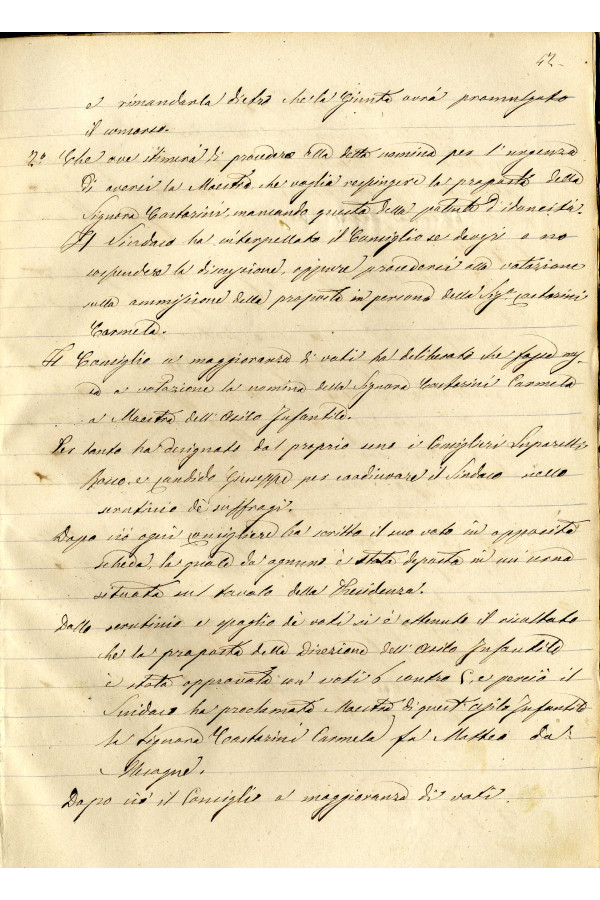 42
e rimandarla dietro che la Giunta avrà promulgato
il concorso.
2.º Che ove stimerà di procedere alla detta nomina per l'urgenza
di aversi la Maestra, che voglia respingere la proposta della
Signora Costorini, mancando questa della patente d'idoneità.
Il Sindaco ha interpellato il Consiglio se devesi o no
sospendere la discussione, oppure procedersi alla votazione
sulla ammissione della proposta in persona della Sig.ª Costorini
Carmela.
Il Consiglio a maggioranza di voti ha deliberato che fosse mes-
sa a votazione la nomina della Signora Costorini Carmela
a Maestra dell'Asilo Infantile.
Per tanto ha designato dal proprio seno i Consiglieri
Rocco, e Candido Giuseppe per coadiuvare il Sindaco nello
scrutinio de' suffragi.
Dopo ciò ogni consigliere ha scritto il suo voto in apposita
scheda, la quale da ognuno è stata deposta in un'urna
situata sul tavolo della Presidenza.
Dallo scrutinio e spoglio de' voti si è ottenuto il risultato
che la proposta della Direzione dell'Asilo Infantile
è stata approvata con voti 6 contro 5, e perciò il
Sindaco ha proclamata Maestra di quest'Asilo Infantile
la Signora Costorini Carmela fu Matteo da
Mesagne.
Dopo ciò il Consiglio a maggioranza di voti